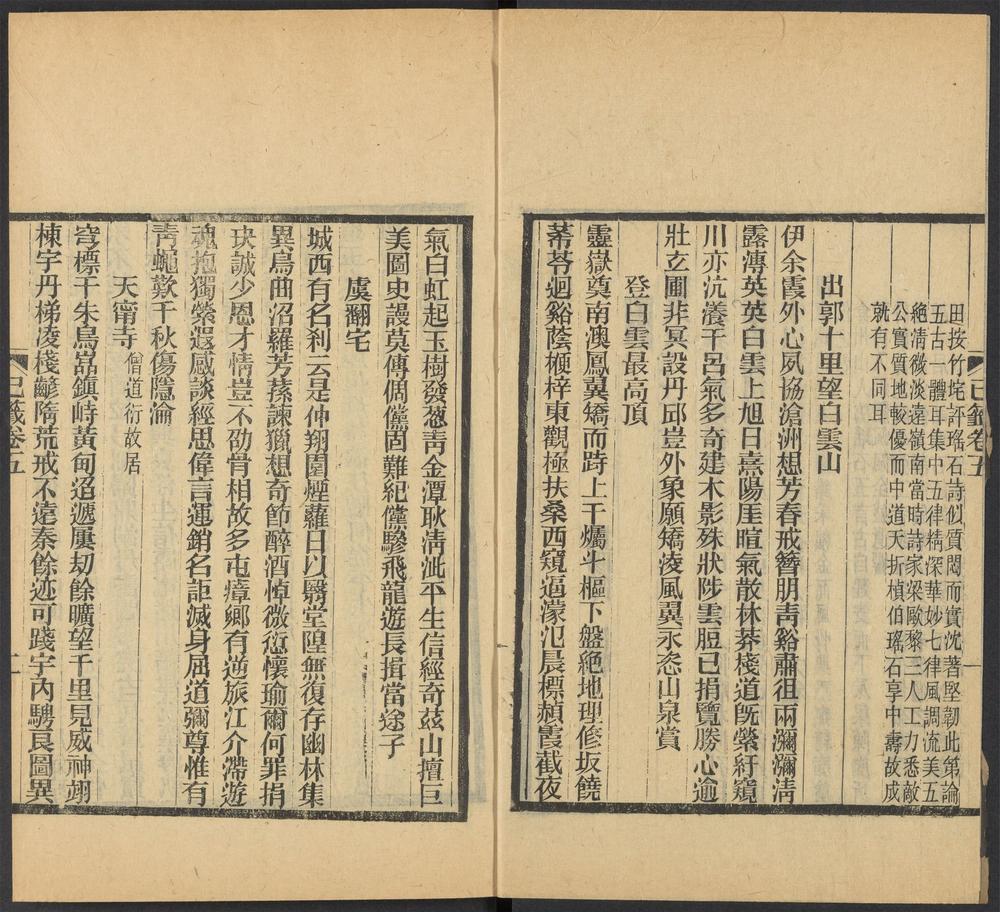 己籤卷五
一
田按竹垞評瑤石詩似質悶而實沈著堅韌此第論
五古一體耳集中五律精深華妙七律風調流美五
絕淸微淡遠嶺南當時詩家梁歐黎三人工力悉敵
公實質地較優而中道夭折楨伯瑤石享中壽故成
就有不同耳
出郭十里望白雲山
伊余霞外心夙協滄洲想芳春戒簪朋靑谿肅徂兩瀰瀰淸
露漙英英白雲上旭日熹陽厓暄氣散林莽棧道旣縈紆窺
川亦沆瀁干呂氣多奇建木影殊狀陟雲脰已捐覽勝心逾
壯玄圃非冥設丹邱豈外象願矯凌風翼永恣山泉賞
登白雲最高頂
靈嶽奠南澳鳳翼矯而跱上干爥斗樞下盤絕地理修坂饒
芾苓迴谿蔭楩梓東觀極扶桑西窺逼濛汜晨標赬霞截夜
氣白虹起玉樹發葱靑金潭耿淸泚平生信經奇茲山擅巨
美圖史謾莫傳倜儻固難紀儻驂飛龍遊長揖當途子
虞翻宅
城西有名刹云是仲翔園煙蘿日以翳堂隍無復存幽林集
異鳥曲沼羅芳蓀諫獵想奇節醉酒悼微愆懷瑜爾何罪捐
玦誠少恩才情豈不劭骨相故多屯瘴鄉有逆旅江介滯遊
魂抱獨縈遐感談經思偉言運銷名詎滅身屈道彌尊惟有
靑蠅歎千秋傷隱淪
天甯寺僧道衍故居
穹標干朱鳥嵓鎭峙黃甸迢遞屢刧餘曠望千里見威神翊
棟宇丹梯凌棧齴隋荒戒不遠秦餘迹可踐宇內騁艮圖異
己籤卷五
二